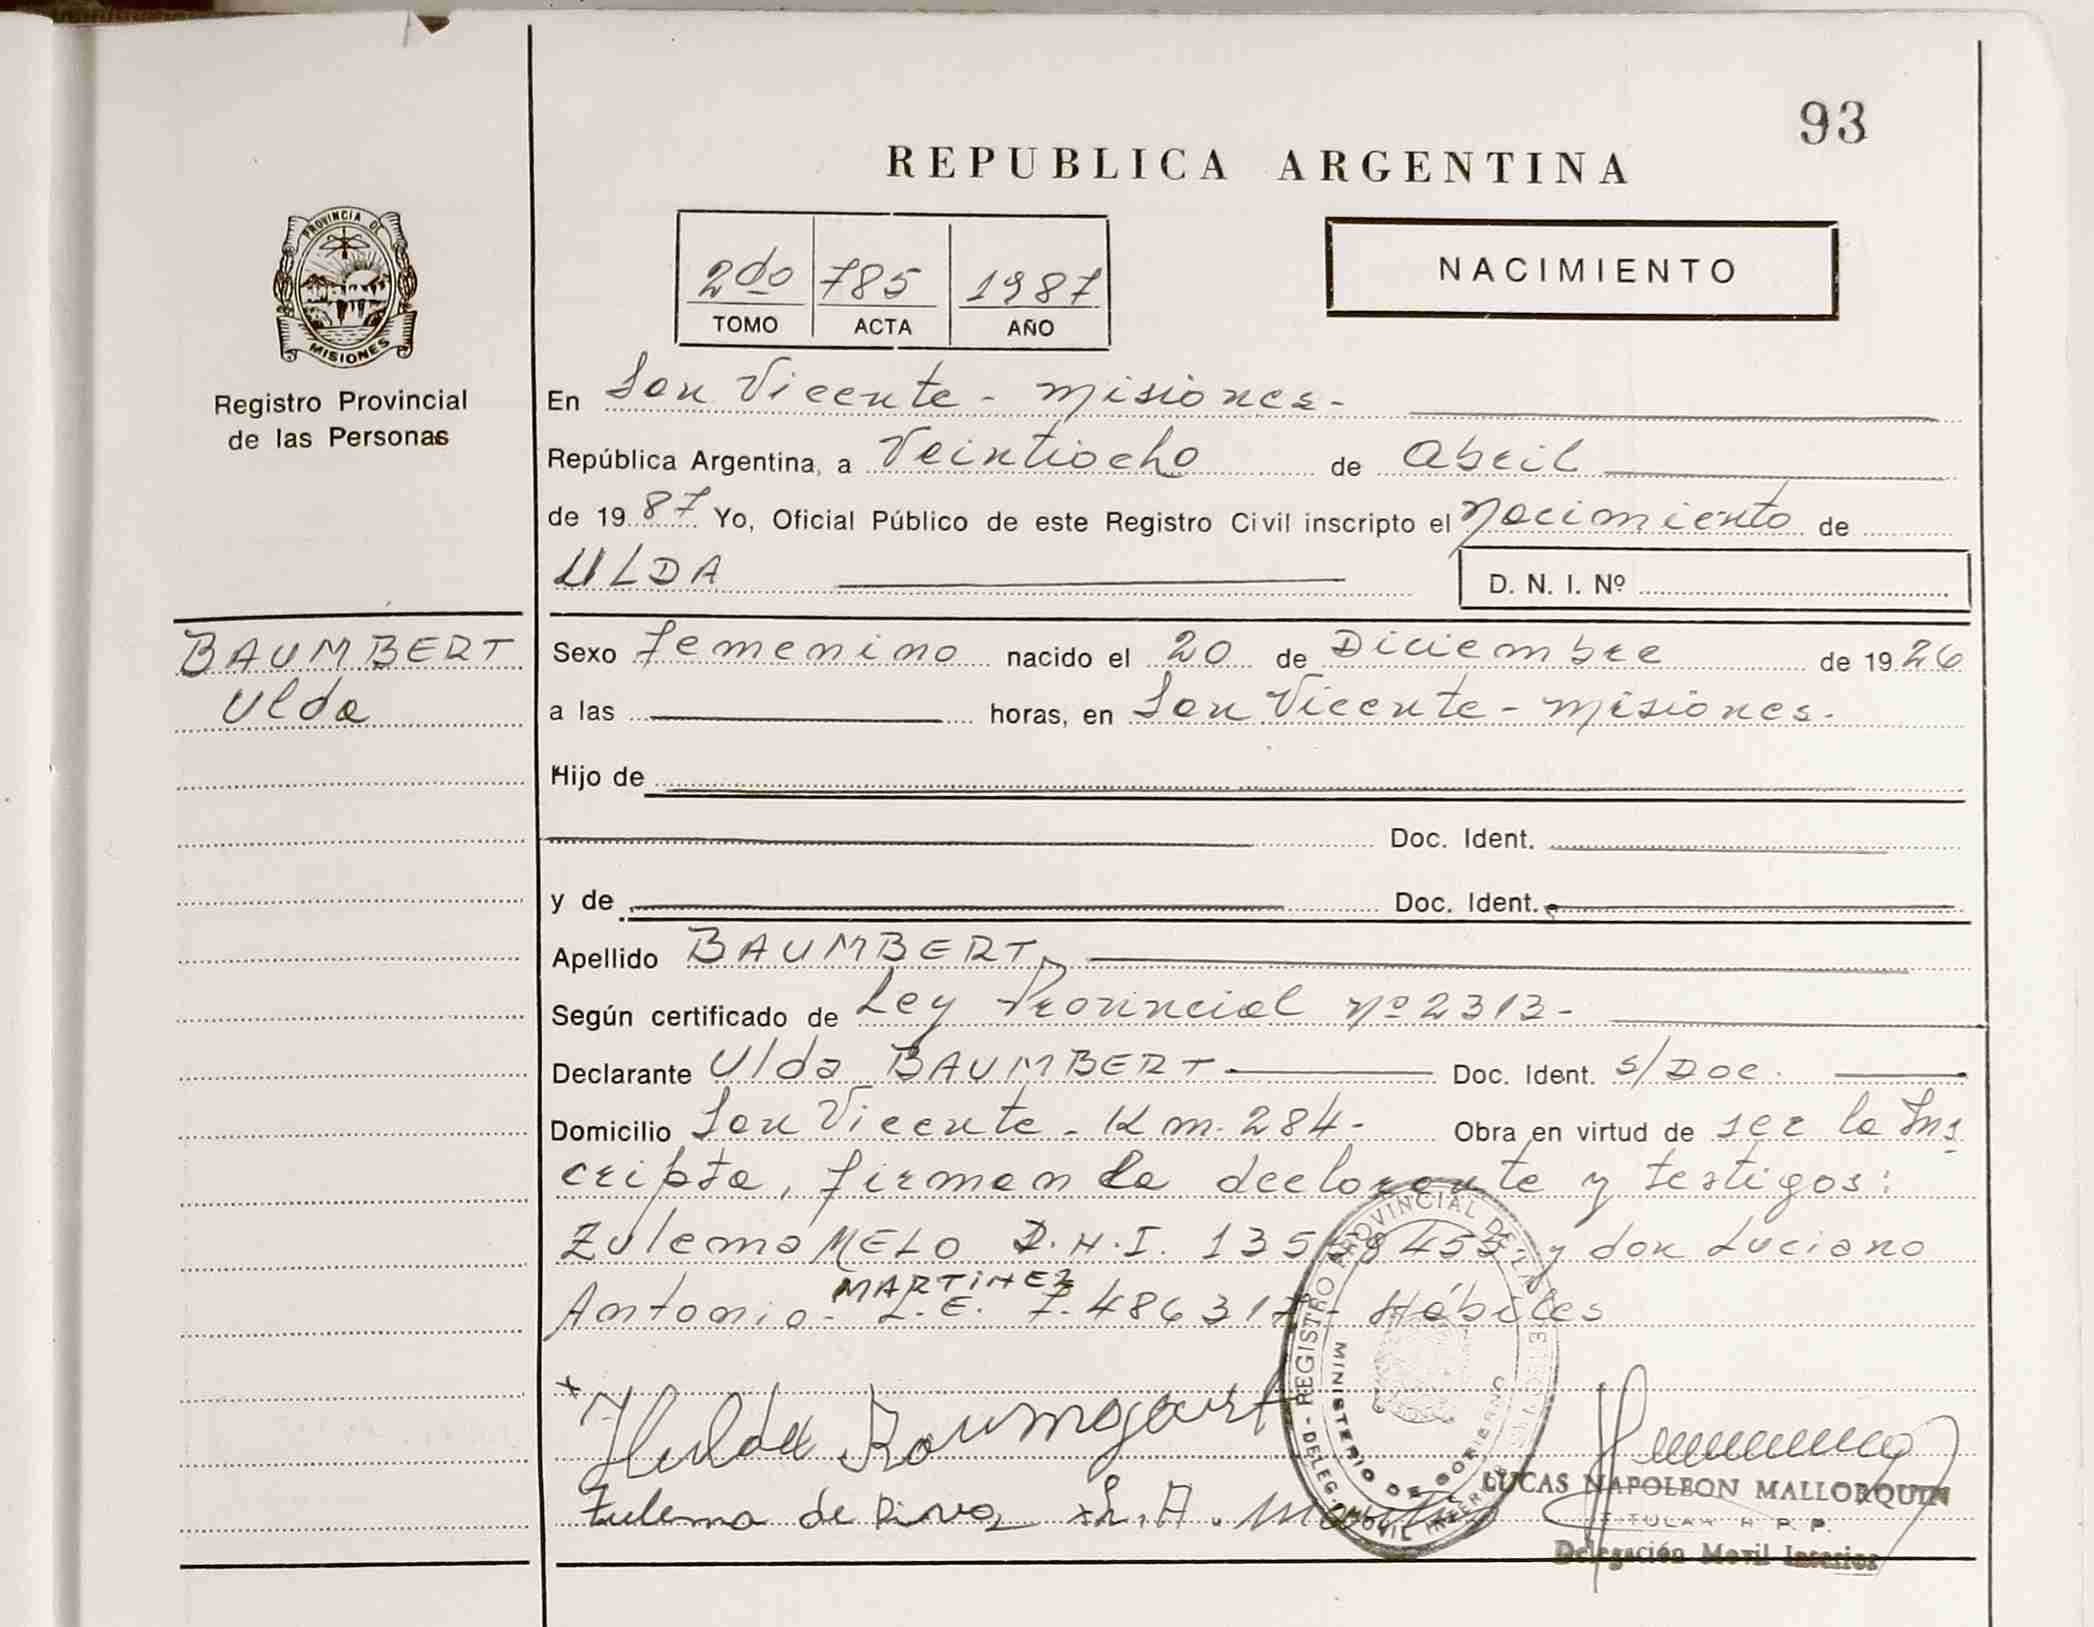 93
REPUBLICA ARGENTINA
PROVINCIA DE
MISIONES
Registro Provincial
de las Personas
2do 785 1987
TOMO ACTA AÑO
NACIMIENTO
En San Vicente - Misiones -
República Argentina, a Veintiocho de Abril
de 1987 Yo, Oficial Público de este Registro Civil inscripto el Nacimiento de
ULDA D. N. I. Nº
BAUMBERT
Ulda
Sexo Femenino nacido el 20 de Diciembre de 1926
a las horas, en San Vicente - Misiones.
Hijo de
Doc. Ident.
y de Doc. Ident.
Apellido BAUMBERT
Según certificado de Ley Provincial Nº 2313 -
Declarante Ulda BAUMBERT Doc. Ident. S/Doc.
Domicilio San Vicente - Km. 284 - Obra en virtud de ser la Ins
cripta, firman la declarante y testigos:
Zulema MELO D.N.I. 13558455 y don Luciano
MARTINEZ
Antonio - L.E. 7.486317 - Hábiles
Hulda Baumgart
Zulema de Rivas L. A. Martinez
REGISTRO PROVINCIAL DE LAS
MINISTERIO DE GOBIERNO
LUCAS NAPOLEON MALLORQUIN
TITULAR R. P. P.
Delegación Movil Interior